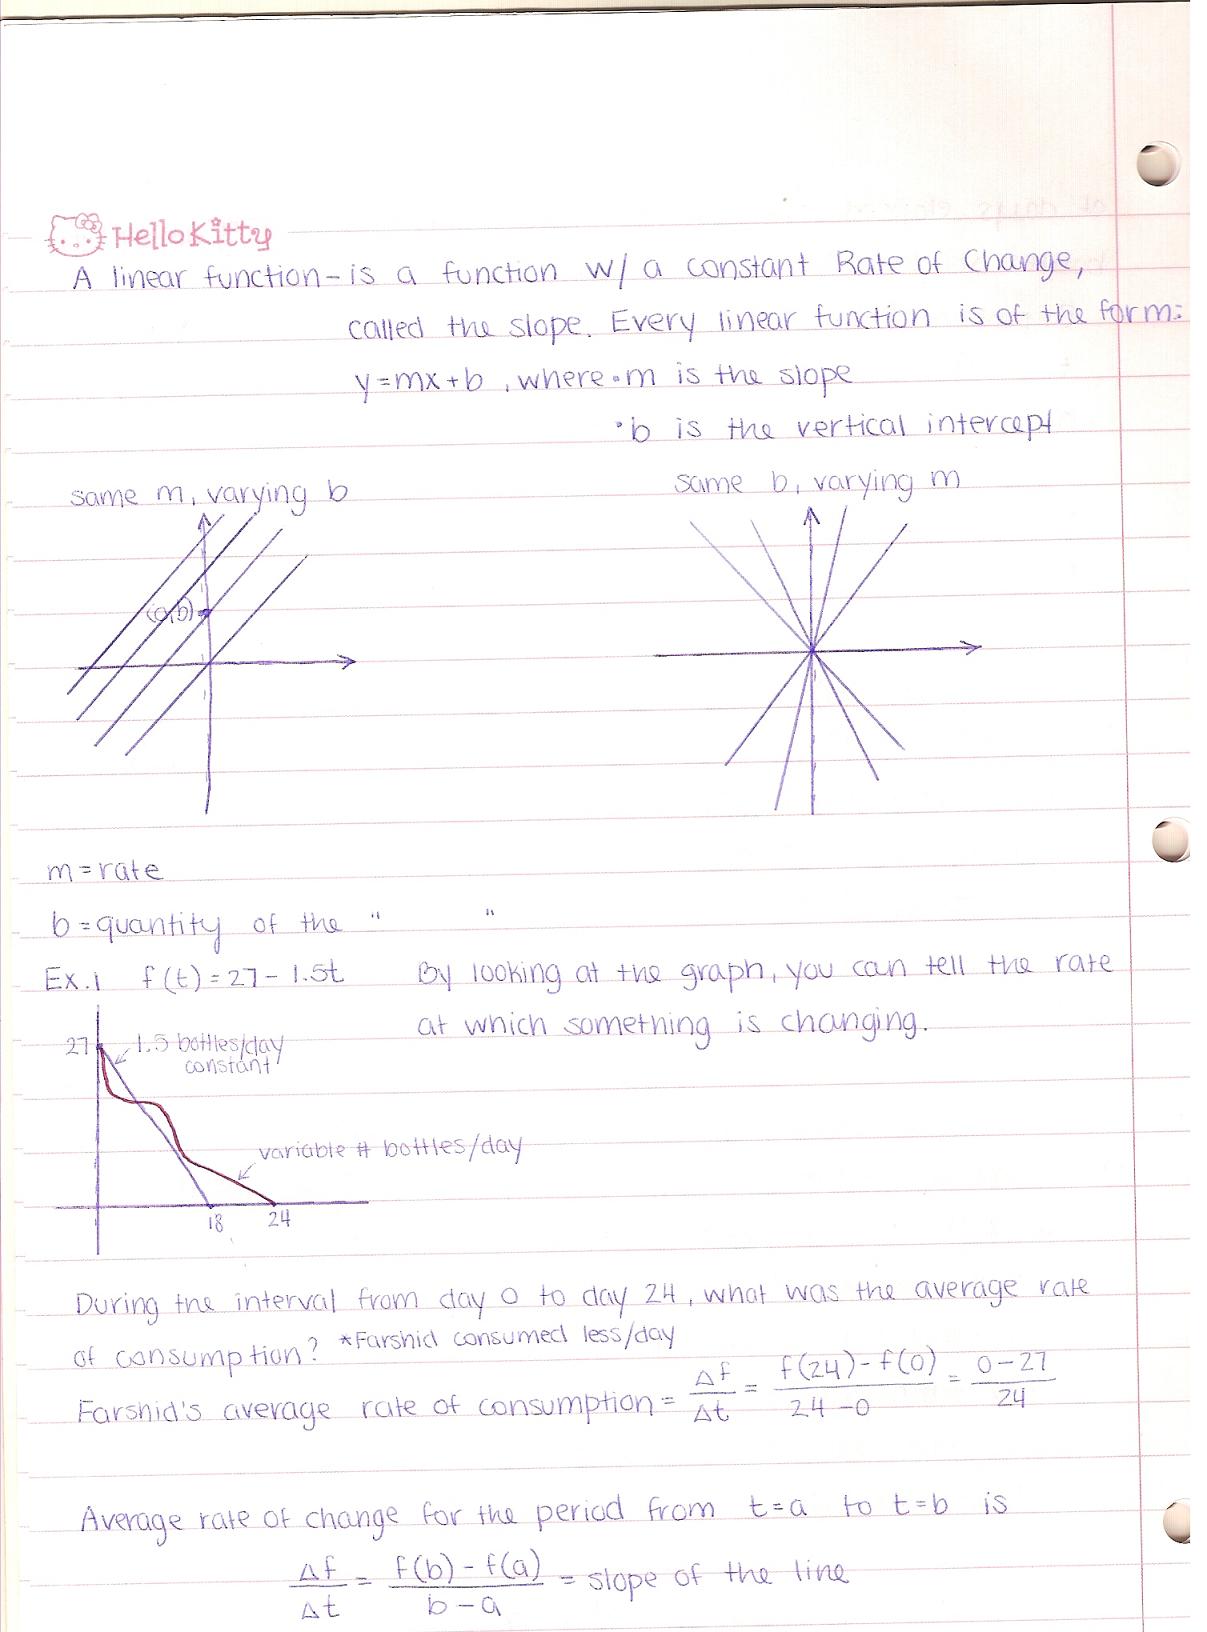 Hello Kitty
A linear function - is a function w/ a constant Rate of Change,
called the slope. Every linear function is of the form:
y = mx + b , where • m is the slope
• b is the vertical intercept
same m, varying b
same b, varying m
(0,b)
m = rate
b = quantity of the " "
Ex. 1 f(t) = 27 - 1.5t
By looking at the graph, you can tell the rate
at which something is changing.
27
1.5 bottles/day
constant
variable # bottles/day
18
24
During the interval from day 0 to day 24, what was the average rate
of consumption? *Farshid consumed less/day
Farshid's average rate of consumption = Δf/Δt = f(24) - f(0)/24 - 0 = 0 - 27/24
Average rate of change for the period from t = a to t = b is
Δf/Δt = f(b) - f(a)/b - a = slope of the line